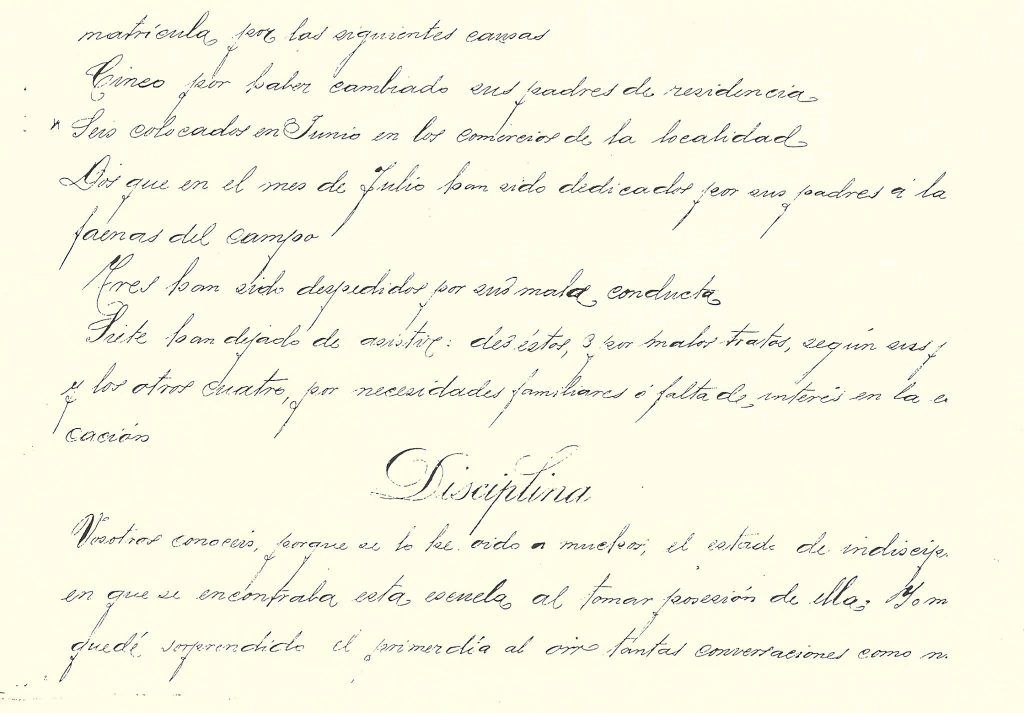 matrícula por las siguientes causas
Cinco por haber cambiado sus padres de residencia
Seis colocados en Junio en los comercios de la localidad
Dos que en el mes de Julio han sido dedicados por sus padres á la
faenas del campo
Tres han sido despedidos por su mala conducta
Siete han dejado de asistir: de éstos, 3 por malos tratos, según sus p
y los otros cuatro, por necesidades familiares ó falta de interés en la e
cación
Disciplina
Vosotros conoceis, porque se lo he oido a muchos, el estado de indiscip
en que se encontraba esta escuela al tomar posesión de ella; Yo m
quedé sorprendido el primer día al oir tantas conversaciones como n